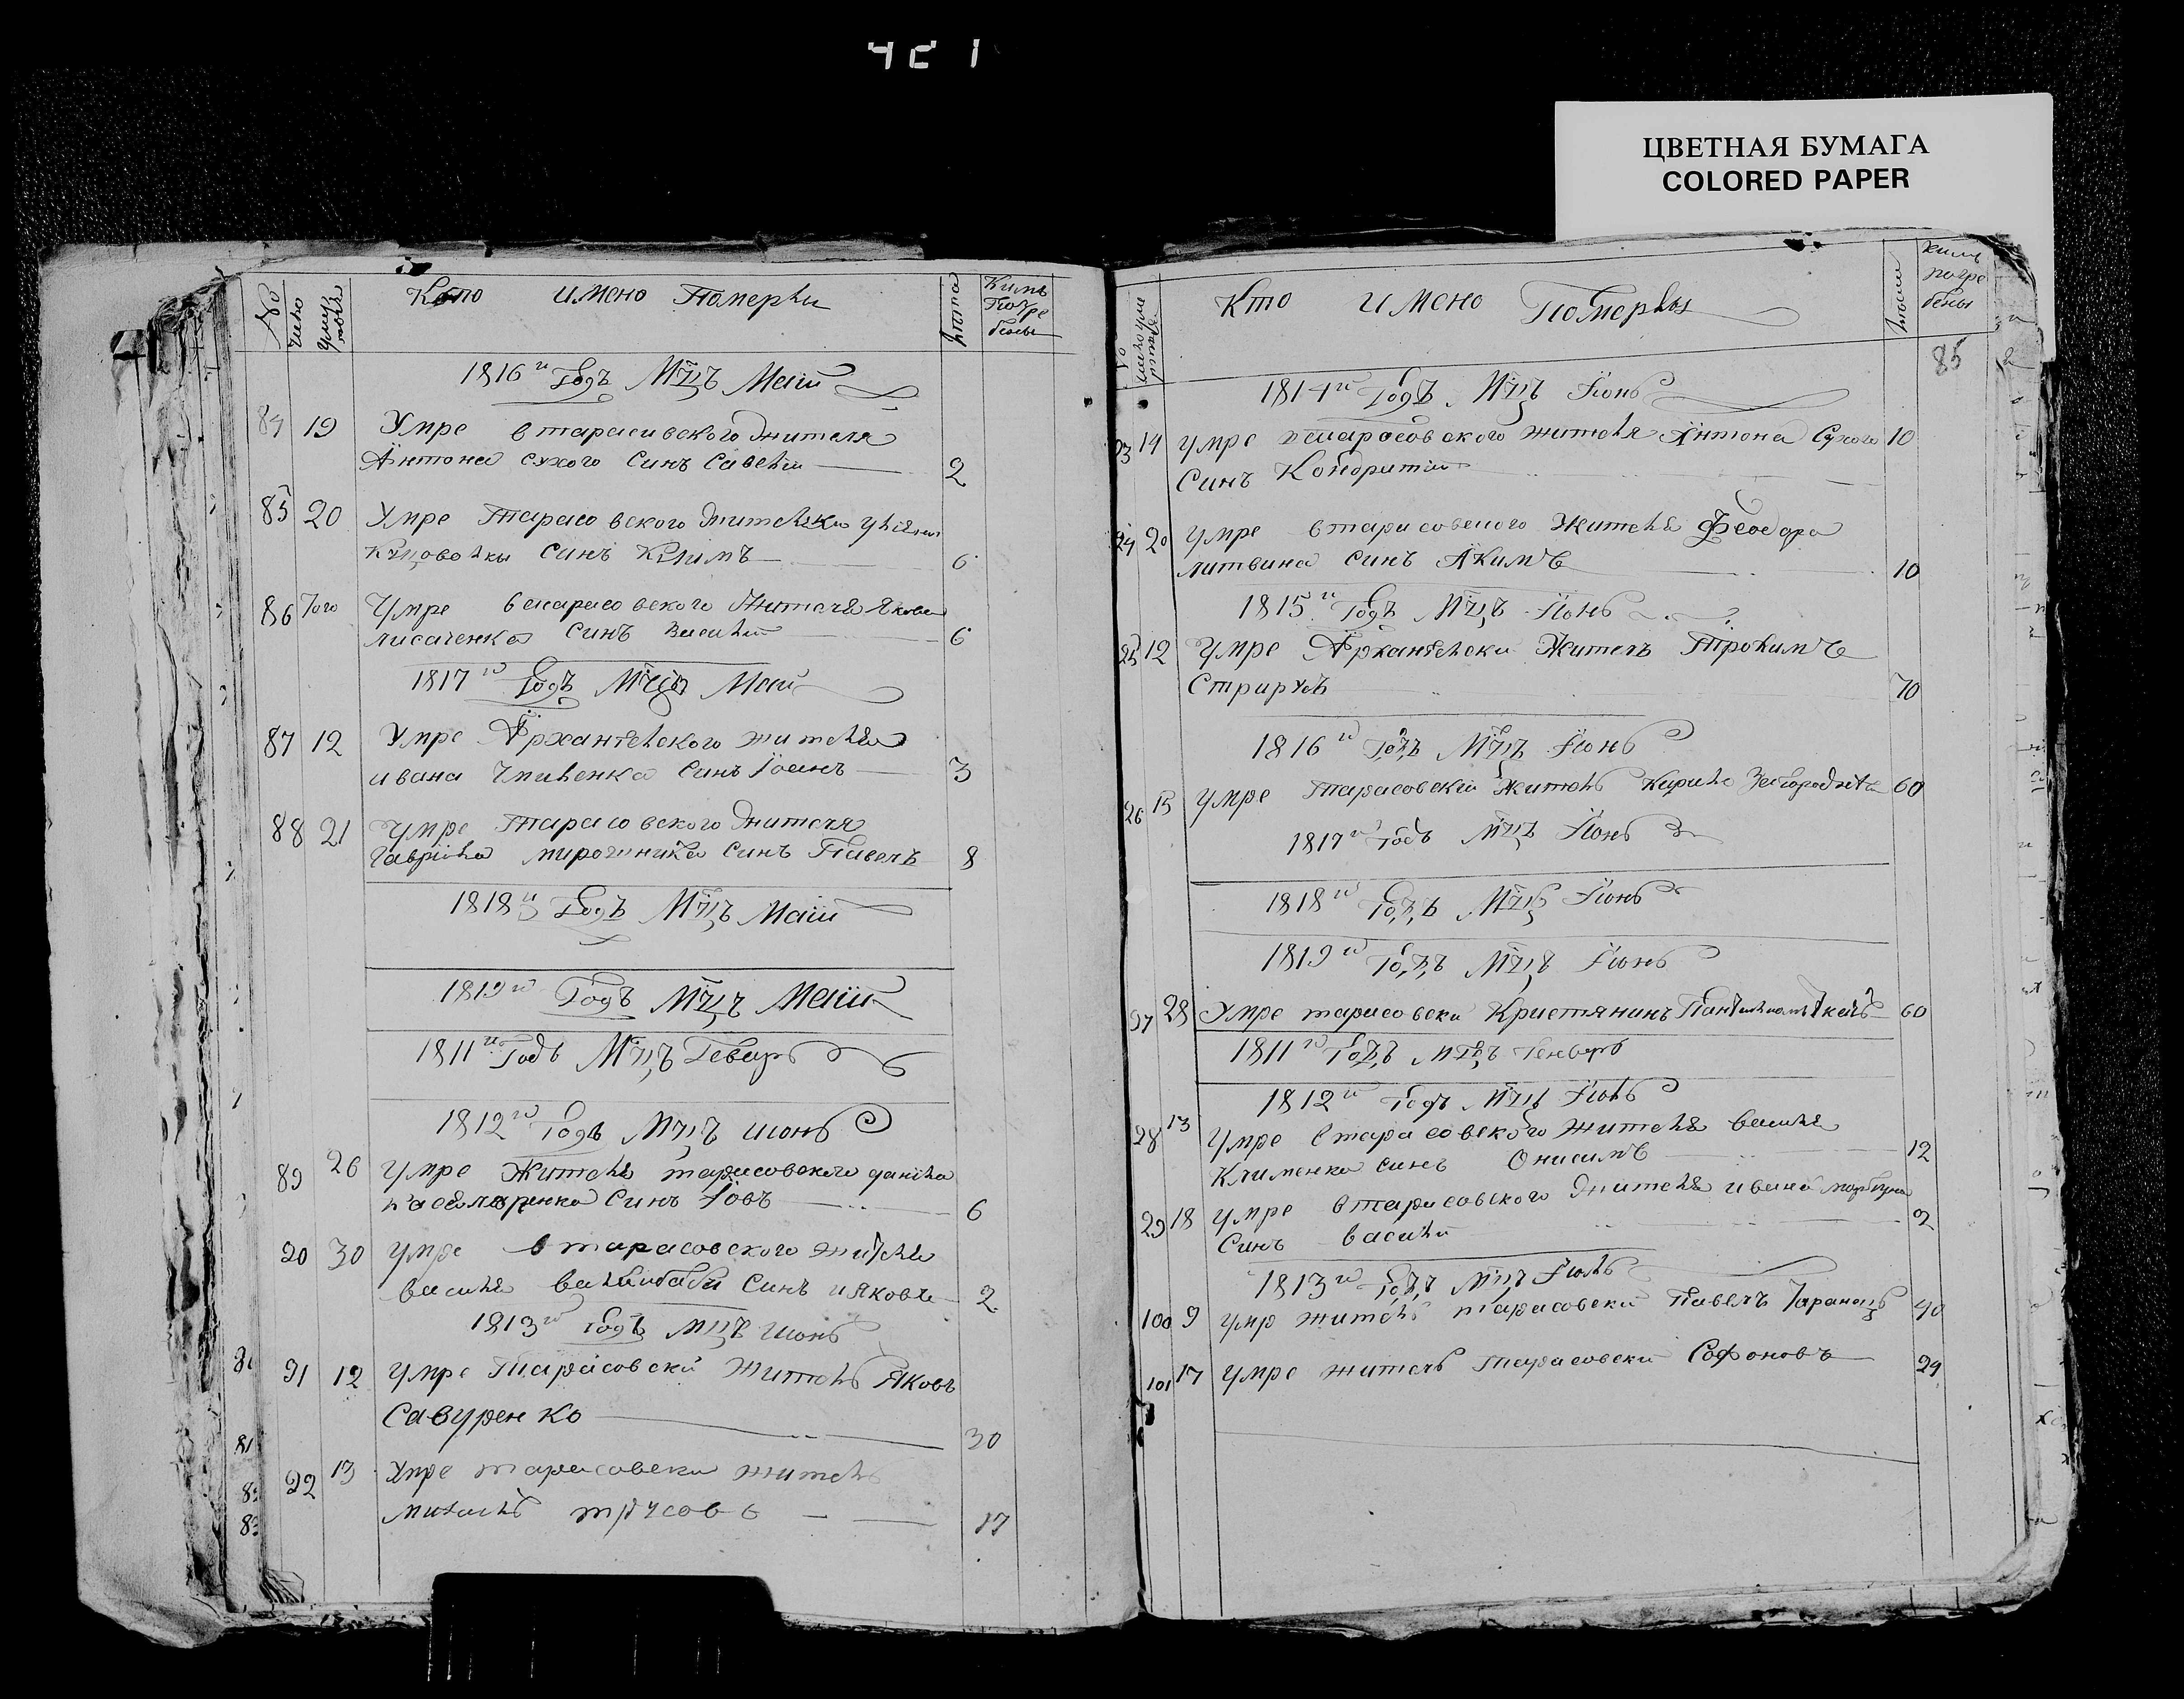 ЦВЕТНАЯ БУМАГА
COLORED PAPER
№ число лета Кимъ Погре бены
Кто имено Померъли
1816 и Годъ Мцъ Маій
84 19 Умре в тарасивского жителя
Антона сухого синъ Савелій 2
85 20 Умре Тарасовского жителки
синъ Климъ 6
86 Того Умре в тарасовского жителя Якова
лисаченка синъ Василій 6
1817 го Годъ Мцъ Маій
87 12 Умре Архангелского жителя
ивана синъ Іоанъ 3
88 21 Умре Тарасовского жителя
Гавріила мирошника синъ Павелъ 8
1818 и Годъ Мцъ Маій
1819 го Годъ Мцъ Маій
1811 и Годъ Мцъ Геваръ
1812 го Годъ Мцъ июнь
89 26 Умре Жителя тарасовского даніила
синъ Іовъ 6
90 30 умре в тарасовского жителя
василя синъ ияковъ 2
1813 го Годъ Мцъ Июнь
91 12 умре Тарасовски Житель Яковъ
Савуренко 30
92 13 Умре тарасовски житель
михаилъ трусовъ 17
Кто имено Померълы
лета кимъ погре бены
85
1814 го Годъ Мцъ Іюнь
93 14 умре тарасовского жителя Антона Сухого 10
Синъ Кондратій
94 20 умре в тарасовского Жителя Феодора
литвина синъ Акимъ 10
1815 и Годъ Мцъ Іюнь
95 12 Умре Архангелски Житель Трохимъ
Стриружъ 70
1816 го Годъ Мцъ Іюнь
96 15 умре Тарасовскій житель Кирило 60
1817 го Годъ Мцъ Іюнь
1818 го Годъ Мцъ Іюнь
1819 го Годъ Мцъ Іюнь
97 28 Умре тарасовски Кристянинъ 60
1811 го Годъ Мцъ Генваръ
1812 го Годъ Мцъ Іюль
98 13 Умре в тарасовского жителя василя
Клименка синъ Онисимъ 12
99 18 умре в тарасовского жителя ивана
Синъ васили 2
1813 го Годъ Мцъ Іюль
100 9 умр житель тарасовски Павелъ Таранецъ 40
101 17 умре житель тарасовски Софоновъ 24